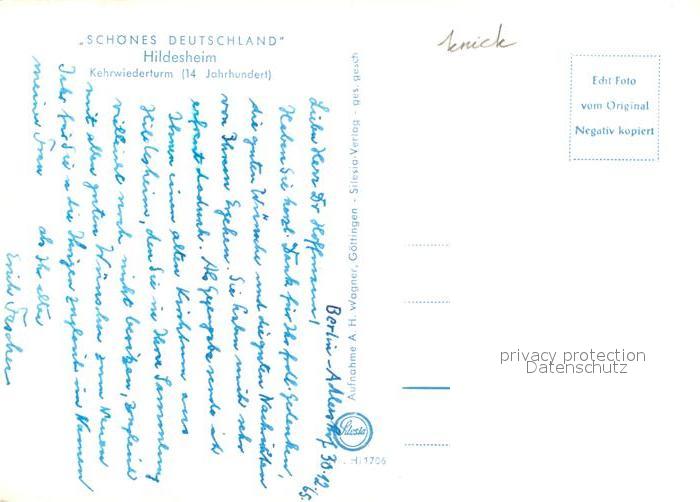 „SCHÖNES DEUTSCHLAND“
Hildesheim
Kehrwiederturm (14 Jahrhundert)
knick
Echt Foto
vom Original
Negativ kopiert
Aufnahme A. H. Wagner, Göttingen - Silesia-Verlag - ges. gesch
Berlin - 30.12.65
Lieber Herr Dr Hoffmann,
Haben Sie herzl. Dank für Ihr frdl. Gedenken,
die guten Wünsche und die guten Nachrichten
von Ihrem Ergehen. Sie haben mich sehr
erfreut dadurch. Als Gegengabe sende ich
Ihnen einen alten aus
Hildesheim, den Sie in Ihrer Sammlung
vielleicht noch nicht besitzen, zugleich
mit allen guten Wünschen zum Neuen
Jahr für Sie u die Ihrigen zugleich im Namen
meiner Frau
als Ihr alter
Erich
Silesia
Hi 1706
privacy protection
Datenschutz